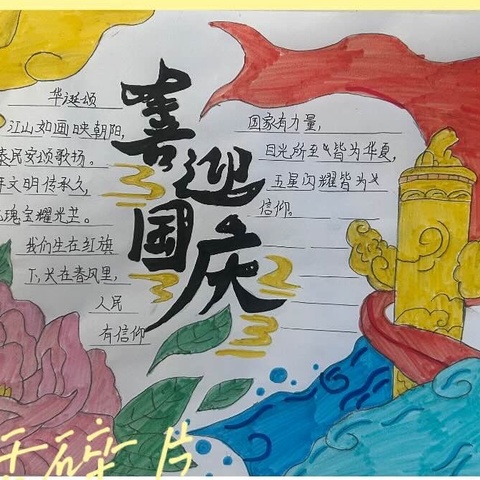 喜迎国庆
华诞颂
江山如画映朝阳,
泰民安颂歌扬。
年文明传承久,
瑰宝耀光芒。
我们生在红旗
下,长在春风里,
人民
有信仰
国家有力量,
目光所至 皆为华夏,
五星闪耀皆为
信仰。
碎片